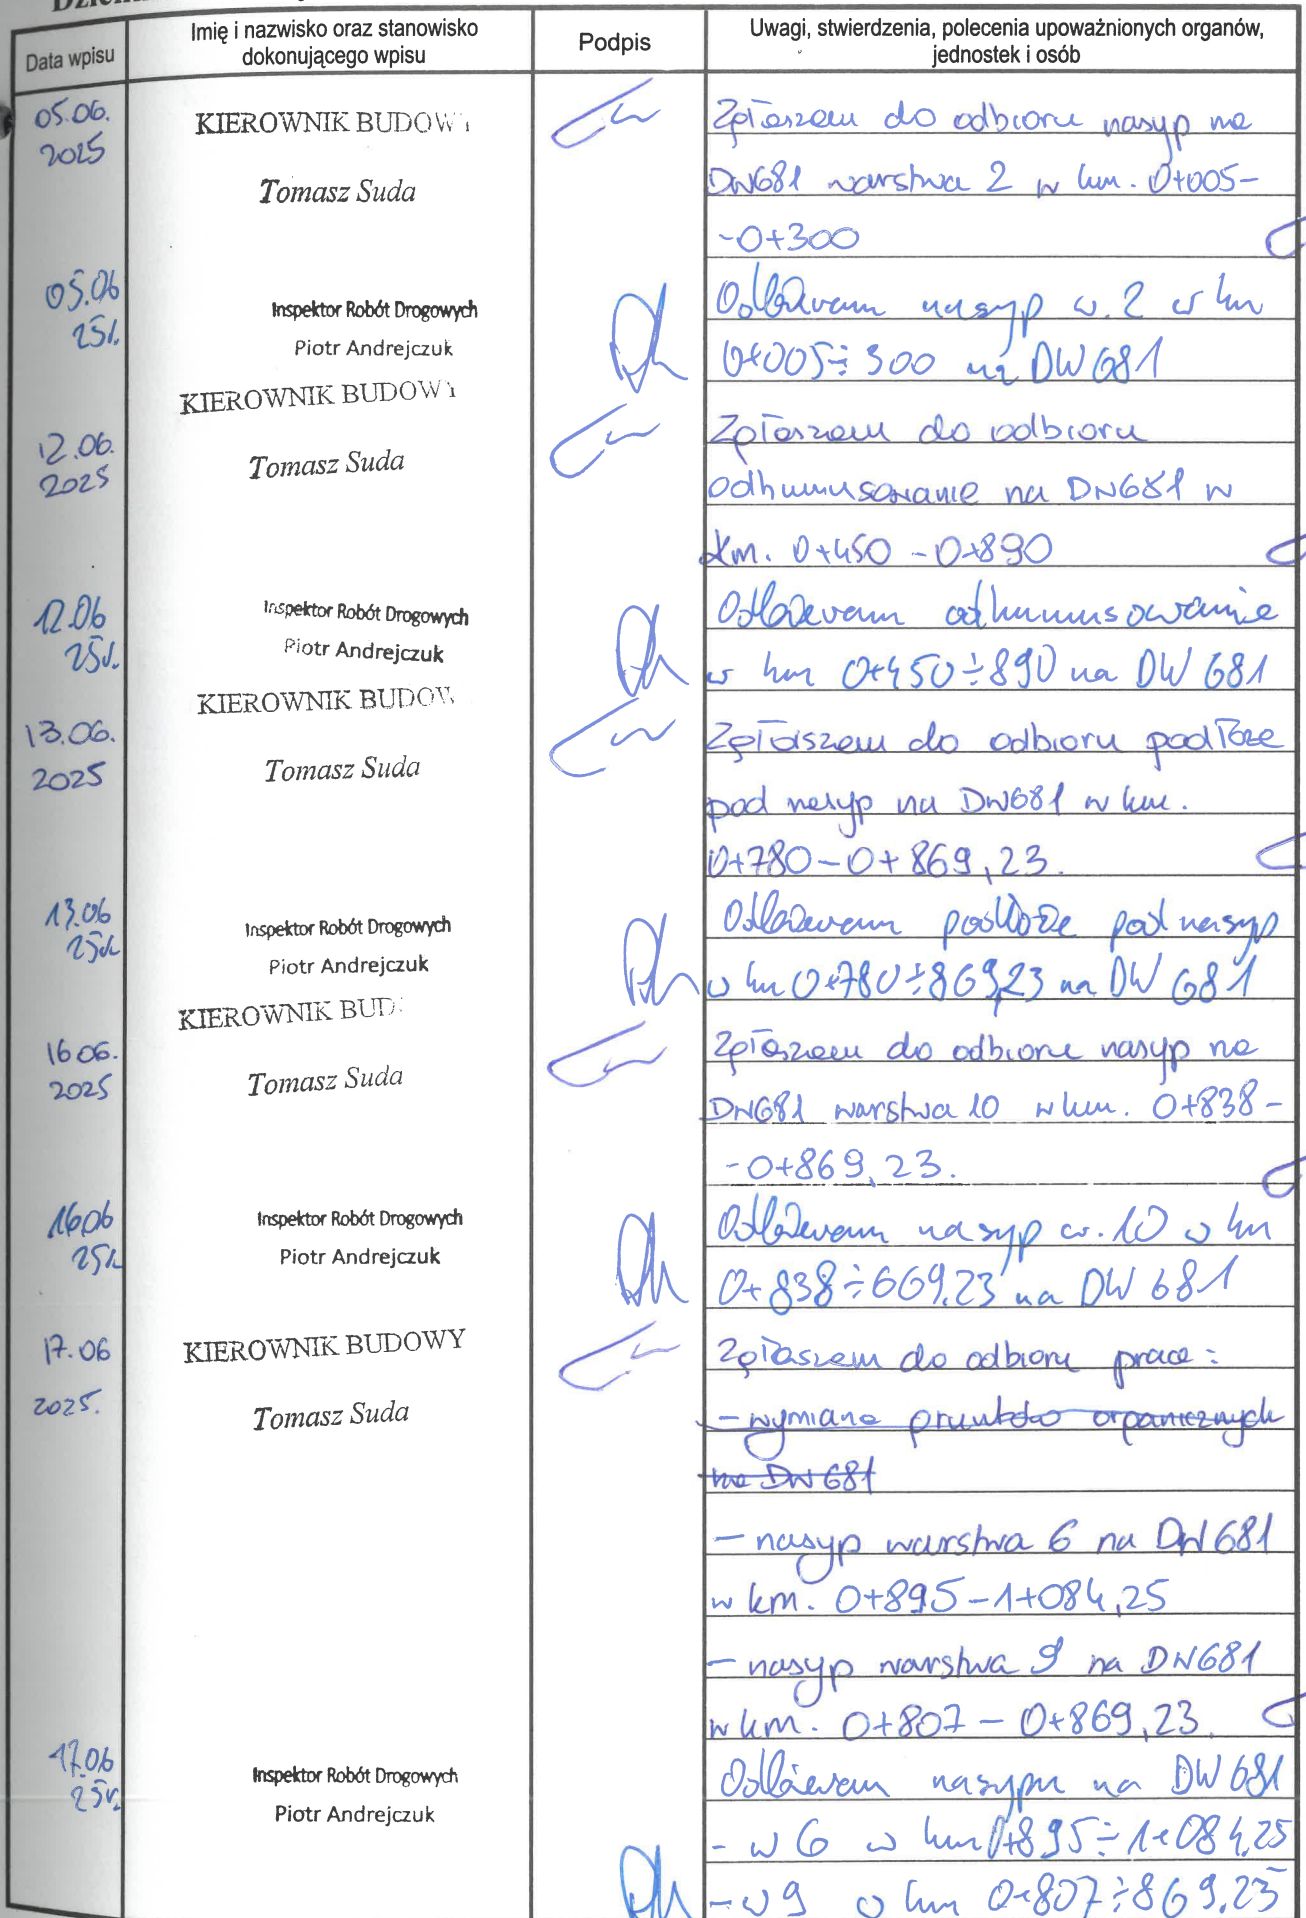 Data wpisu
Imię i nazwisko oraz stanowisko
dokonującego wpisu
Podpis
Uwagi, stwierdzenia, polecenia upoważnionych organów,
jednostek i osób
05.06.
2025
KIEROWNIK BUDOWY
Tomasz Suda
Zgłaszam do odbioru nasyp na
DW681 warstwa 2 w km. 0+005-
-0+300
05.06
25r.
Inspektor Robót Drogowych
Piotr Andrejczuk
Odbieram nasyp w. 2 w km
0+005÷300 na DW 681
12.06.
2025
KIEROWNIK BUDOWY
Tomasz Suda
Zgłaszam do odbioru
odhumusowanie na DW681 w
km. 0+450 -0+890
12.06
25r.
Inspektor Robót Drogowych
Piotr Andrejczuk
Odbieram odhumusowanie
w km 0+450÷890 na DW 681
13.06.
2025
KIEROWNIK BUDOW
Tomasz Suda
Zgłaszam do odbioru podłoże
pod nasyp na DW681 w km.
0+780-0+869,23.
13.06
25r.
Inspektor Robót Drogowych
Piotr Andrejczuk
Odbieram podłoże pod nasyp
w km 0+780÷869,23 na DW 681
16 06.
2025
KIEROWNIK BUD
Tomasz Suda
Zgłaszam do odbioru nasyp na
DW681 warstwa 10 w km. 0+838-
-0+869,23.
16.06
25r.
Inspektor Robót Drogowych
Piotr Andrejczuk
Odbieram nasyp w. 10 w km
0+838÷669,23 na DW 681
17.06
2025.
KIEROWNIK BUDOWY
Tomasz Suda
Zgłaszam do odbioru prace:
- wymiana gruntów organicznych
na DW 681
- nasyp warstwa 6 na DW 681
w km. 0+895-1+084,25
- nasyp warstwa 9 na DW681
w km. 0+807 - 0+869,23.
17.06
25r.
Inspektor Robót Drogowych
Piotr Andrejczuk
Odbieram nasypu na DW 681
- w 6 w km 0+895÷1+084,25
- w 9 w km 0+807÷869,23